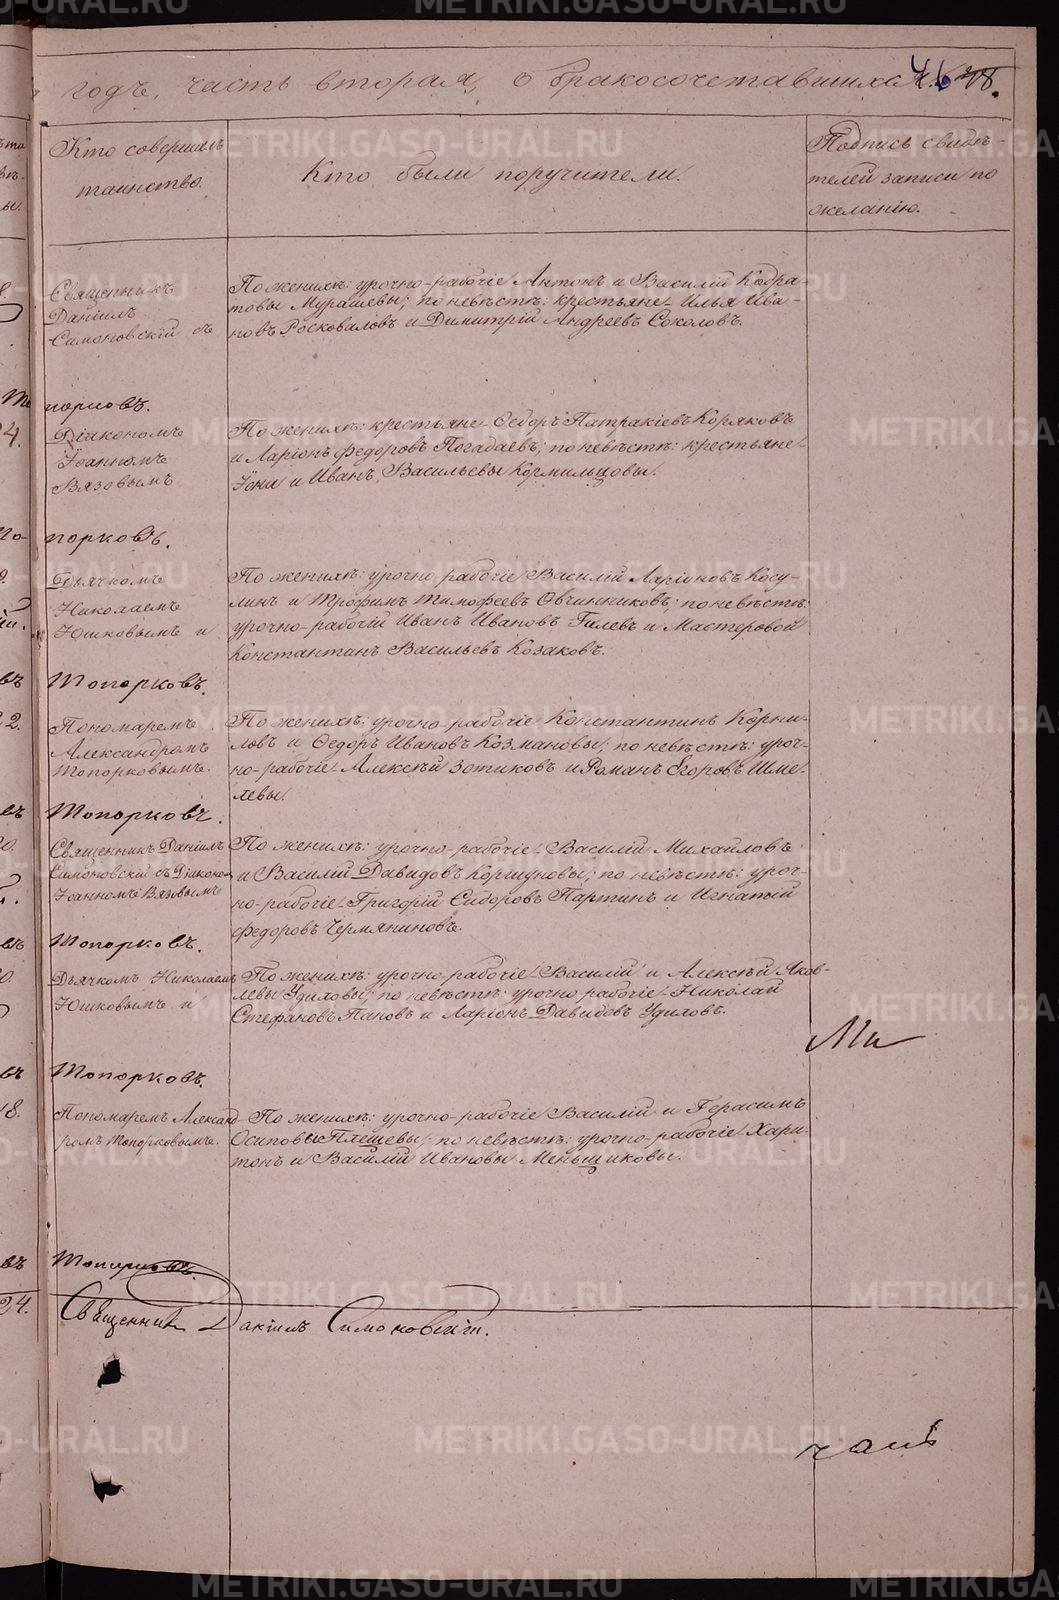 годъ, часть вторая, о бракосочетавшихся.
48.
Кто совершилъ
таинство.
Кто были поручители.
Подпись свидѣ-
телей записи по
желанію.
Священникъ
Даніилъ
Симоновскій съ
По женихѣ: урочно-рабочіе Антонъ и Василій Кодра-
товы Мурашевы; по невѣстѣ: крестьяне Илья Ива-
новъ Росковаловъ и Димитрій Андреевъ Соколовъ.
Діакономъ
Іоанномъ
Вязовымъ
По женихѣ: крестьяне Ѳедоръ Патракіевъ Коряковъ
и Ларіонъ Федоровъ Погадаевъ; по невѣстѣ: крестьяне
Іона и Иванъ Васильевы Кормильцовы.
порковъ.
Дьячкомъ
Николаемъ
Юшковымъ и
По женихѣ: урочно рабочіе Василій Ларіоновъ Косу-
линъ и Трофимъ Тимофеевъ Овчинниковъ; по невѣстѣ:
урочно-рабочій Иванъ Ивановъ Гилевъ и Мастеровой
Константинъ Васильевъ Козаковъ.
Топорковъ.
Пономаремъ
Александромъ
Топорковымъ.
По женихѣ: урочно-рабочіе Константинъ Корни-
ловъ и Ѳедоръ Ивановъ Козмановы; по невѣстѣ: уроч-
но-рабочіе Алексѣй Зотиковъ и Романъ Егоровъ Шме-
левы.
Топорковъ.
Священникъ Даніилъ
Симоновскій съ Діаконо
Іоанномъ Вязовымъ
По женихѣ: урочно-рабочіе Василій Михайловъ
и Василій Давидовъ Коршуновы; по невѣстѣ: уроч-
но-рабочіе Григорій Сидоровъ Партинъ и Игнатій
Федоровъ Чермяниновъ.
Топорковъ.
Дьячкомъ Николаемъ
Юшковымъ и
По женихѣ: урочно-рабочіе Василій и Алексѣй Яков-
левы Удиловы; по невѣстѣ: урочно рабочіе Николай
Стефановъ Пановъ и Ларіонъ Давидовъ Удиловъ.
Топорковъ.
Пономаремъ Александ-
ромъ Топорковымъ.
По женихѣ: урочно-рабочіе Василій и Герасимъ
Осиповы Плещевы; по невѣстѣ: урочно-рабочіе Хари-
тонъ и Василій Ивановы Меньщиковы.
Топорковъ.
Священникъ Даніилъ Симоновскій.
METRIKI.GASO-URAL.RU